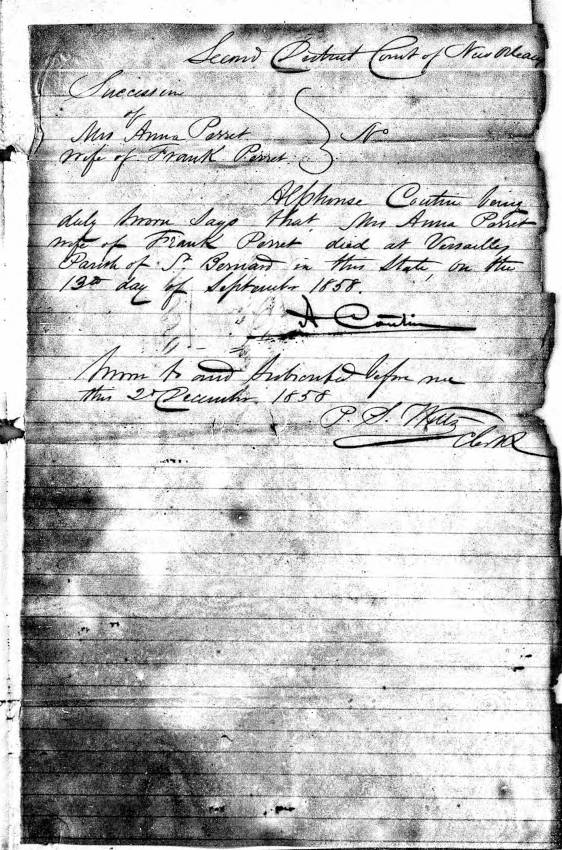 Second District Court of New Orleans
Succession
of
Mrs Anna Perret
wife of Frank Perret
No
Alphonse Coutin being
duly sworn says that, Mrs Anna Perret
wife of Frank Perret died at Versailles
Parish of St Bernard in this State, on the
13th day of September 1858.
A Coutin
Sworn to and subscribed before me
this 2d December 1858
P. S. Wiltz
Clerk